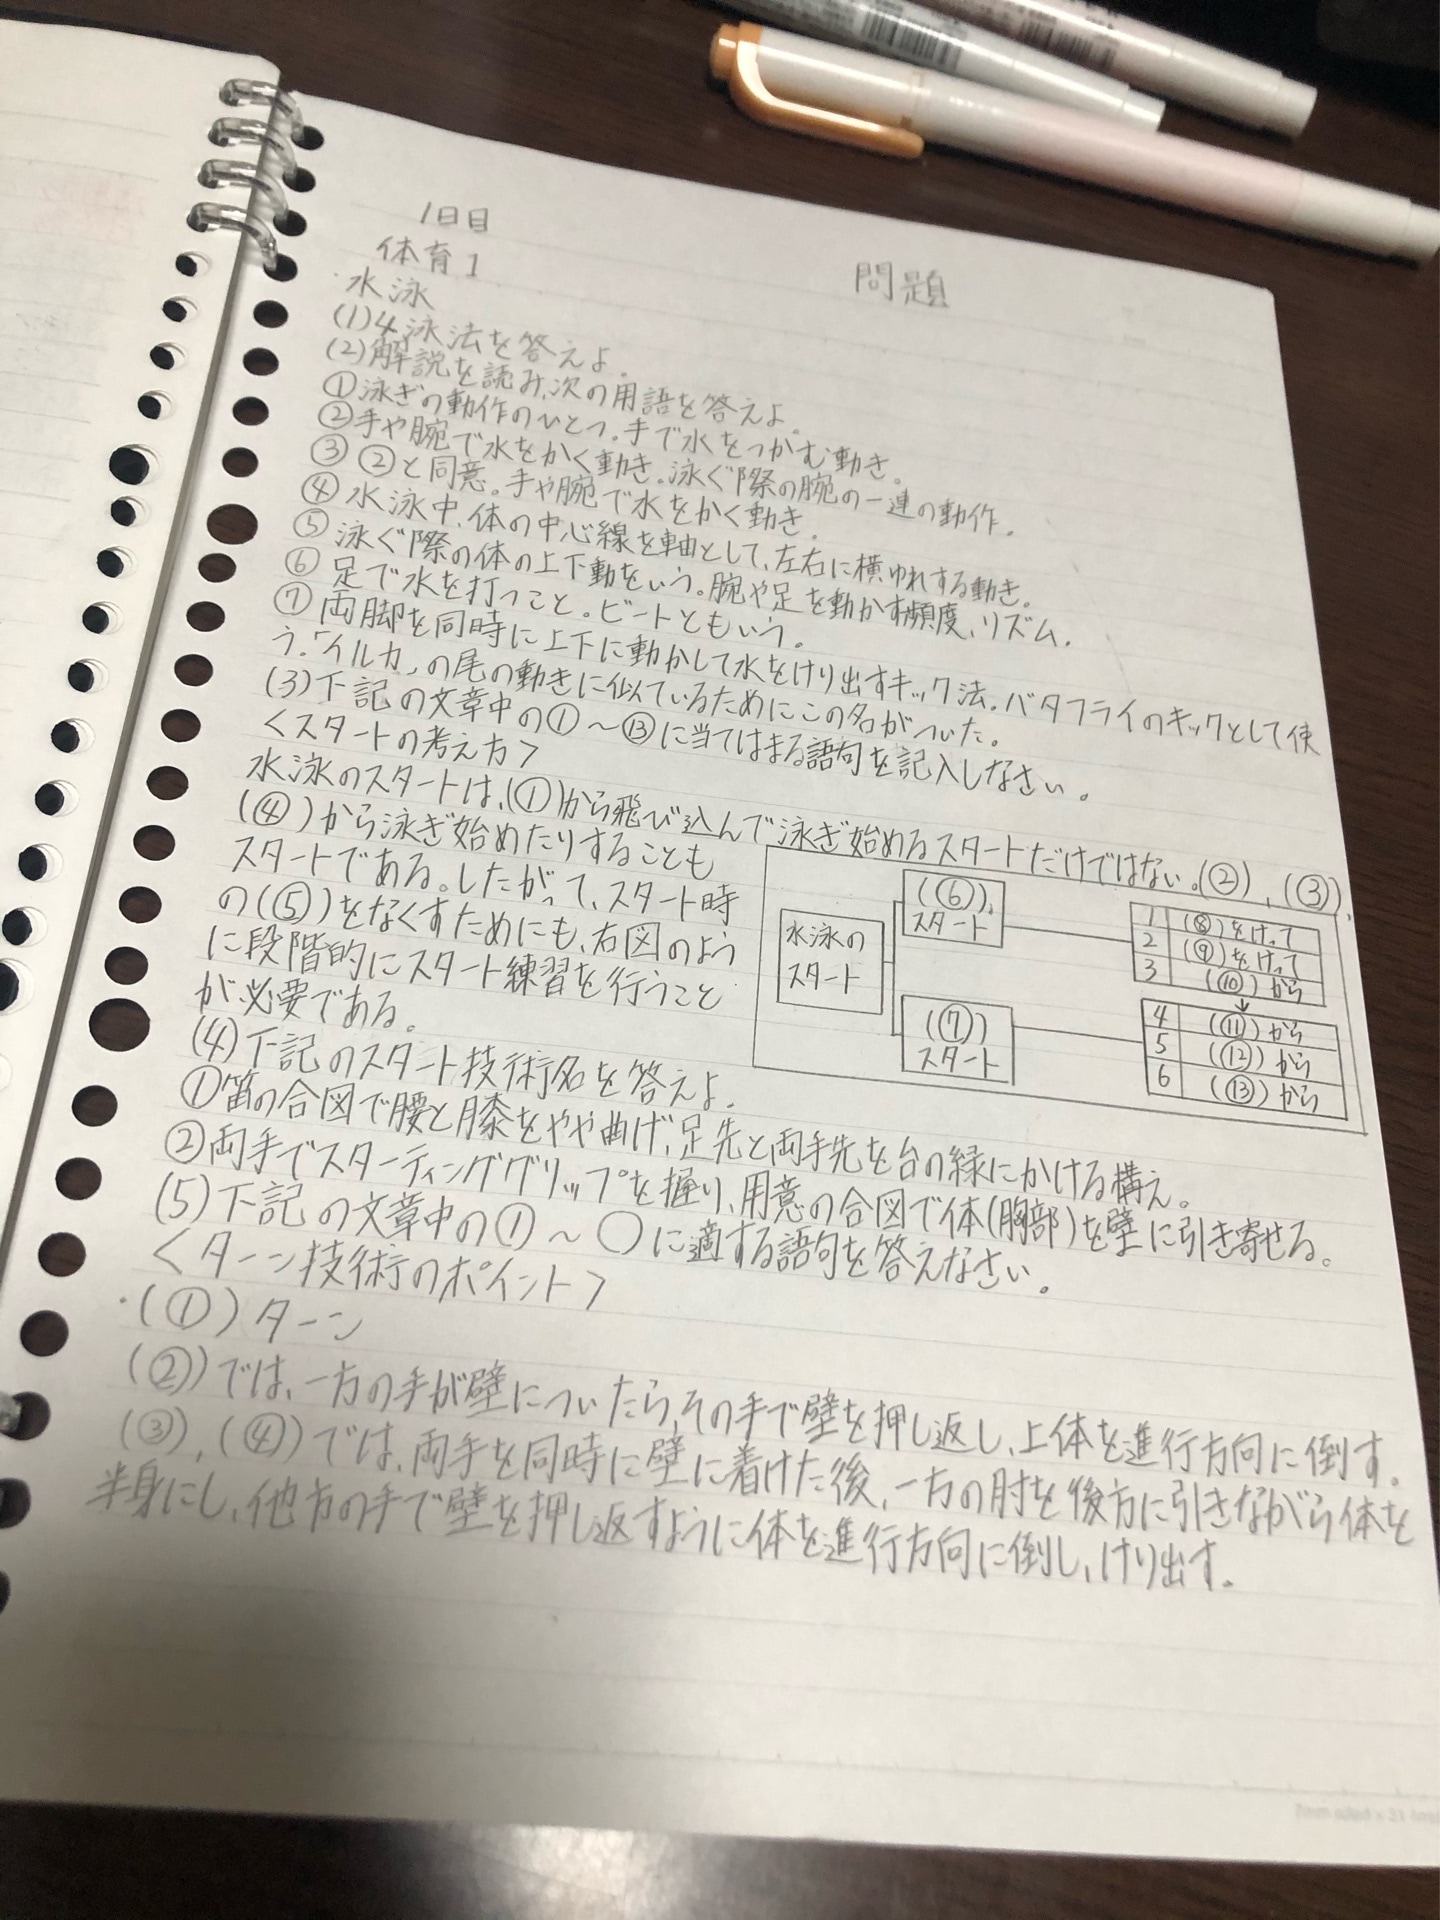 1日目
体育1
問題
・水泳
(1)4泳法を答えよ。
(2)解説を読み、次の用語を答えよ。
①泳ぎの動作のひとつ。手で水をつかむ動き。
②手や腕で水をかく動き。泳ぐ際の腕の一連の動作。
③②と同意。手や腕で水をかく動き。
④水泳中、体の中心線を軸として、左右に横ゆれする動き。
⑤泳ぐ際の体の上下動をいう。腕や足を動かす頻度、リズム。
⑥足で水を打つこと。ビートともいう。
⑦両脚を同時に上下に動かして水をけり出すキック法。バタフライのキックとして使
う。「イルカ」の尾の動きに似ているためにこの名がついた。
(3)下記の文章中の①～⑬に当てはまる語句を記入しなさい。
<スタートの考え方>
水泳のスタートは、(①)から飛び込んで泳ぎ始めるスタートだけではない。(②)、(③)、
(④)から泳ぎ始めたりすることも
スタートである。したがって、スタート時
の(⑤)をなくすためにも、右図のよう
に段階的にスタート練習を行うこと
が必要である。
水泳の
スタート
(⑥)
スタート
(⑦)
スタート
1 (⑧)をけって
2 (⑨)をけって
3 (⑩)から
↓
4 (⑪)から
5 (⑫)から
6 (⑬)から
(4)下記のスタート技術名を答えよ。
①笛の合図で腰と膝をやや曲げ、足先と両手先を台の縁にかける構え。
②両手でスターティンググリップを握り、用意の合図で体(胸部)を壁に引き寄せる。
(5)下記の文章中の①～○に適する語句を答えなさい。
<ターン技術のポイント>
・(①)ターン
(②)では、一方の手が壁についたら、その手で壁を押し返し、上体を進行方向に倒す。
(③)、(④)では、両手を同時に壁に着けた後、一方の肘を後方に引きながら体を
半身にし、他方の手で壁を押し返すように体を進行方向に倒し、けり出す。